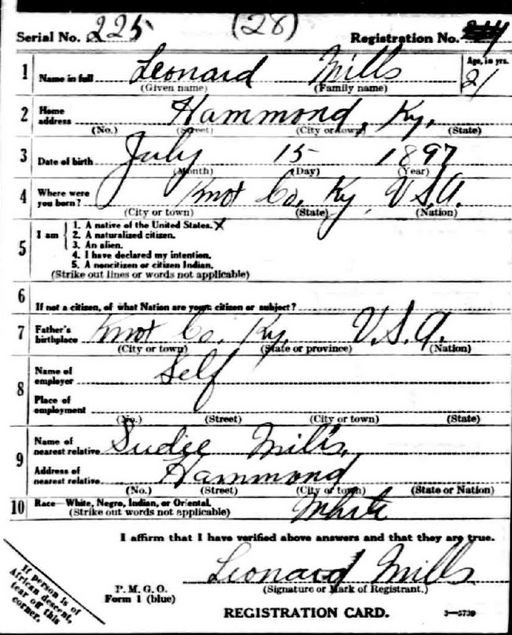 Serial No. 225 (28) Registration No.
1 Name in full Leonard Mills Age, in yrs. 21
(Given name) (Family name)
2 Home address Hammond, Ky.
(No.) (Street) (City or town) (State)
3 Date of birth July 15 1897
(Month) (Day) (Year)
4 Where were you born? Knot Co, Ky, U.S.A.
(City or town) (State) (Nation)
5 I am
1. A native of the United States. X
2. A naturalized citizen.
3. An alien.
4. I have declared my intention.
5. A noncitizen or citizen Indian.
(Strike out lines or words not applicable)
6 If not a citizen, of what Nation are your citizen or subject?
7 Father's birthplace Knot Co. Ky. U.S.A.
(City or town) (State or province) (Nation)
8 Name of employer Self
Place of employment
(No.) (Street) (City or town) (State)
9 Name of nearest relative Sudie Mills,
Address of nearest relative Hammond
(No.) (Street) (City or town) (State or Nation)
10 Race—White, Negro, Indian, or Oriental. White
(Strike out words not applicable)
I affirm that I have verified above answers and that they are true.
Leonard Mills
P. M. G. O. (Signature or Mark of Registrant.)
Form 1 (blue)
REGISTRATION CARD. 3—5739
If person is of
African descent,
tear off this
corner.